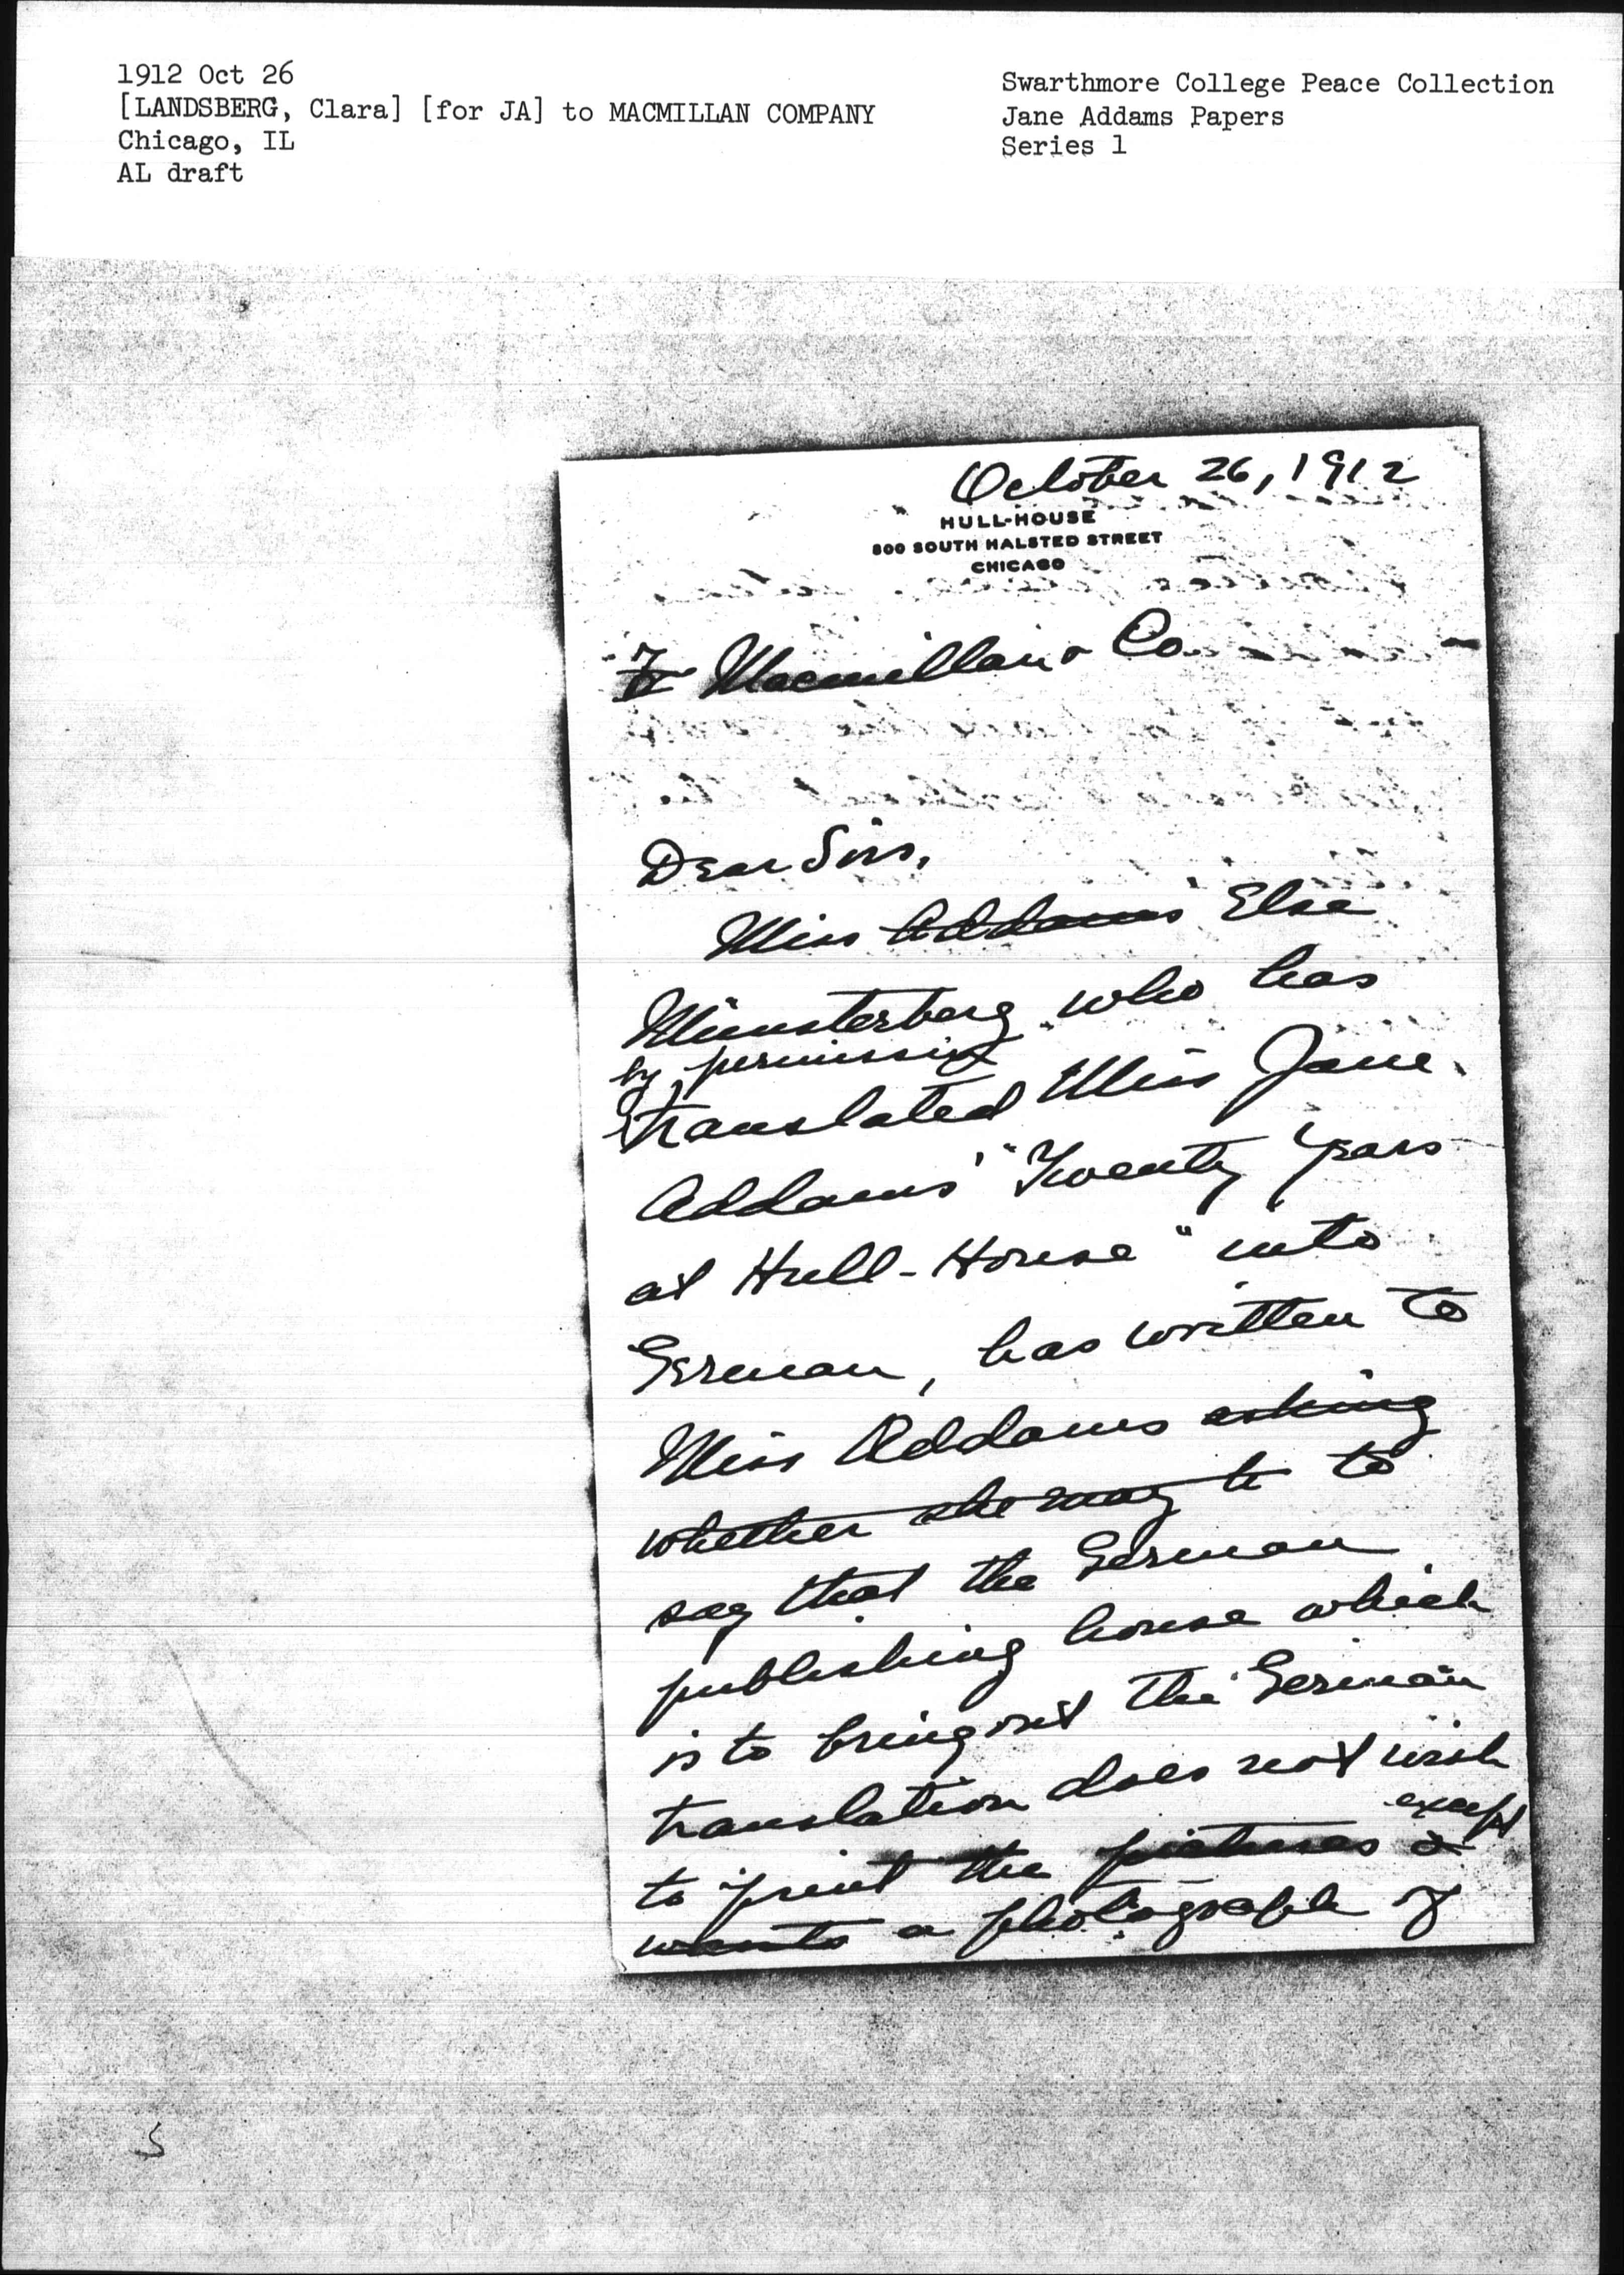 1912 Oct 26
[LANDSBERG, Clara] [for JA] to MACMILLAN COMPANY
Chicago, IL
AL draft
Swarthmore College Peace Collection
Jane Addams Papers
Series 1
October 26, 1912
HULL-HOUSE
800 SOUTH HALSTED STREET
CHICAGO
To Macmillan & Co.
Dear Sirs,
Miss Addams Else
Münsterberg who has
by permission
translated Miss Jane
Addams' "Twenty Years
at Hull-House" into
German, has written to
Miss Addams asking
whether she may to
say that the German
publishing house which
is to bring out the German
translation does not wish
except
to print the pictures &
wants a photograph of
S